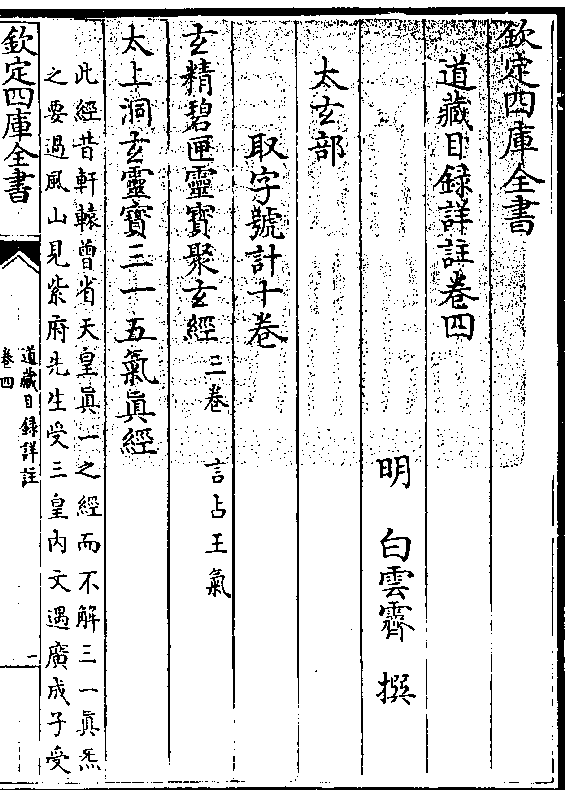 欽定四庫全書
道藏目録詳註卷四
明 白雲霽 撰
太𤣥部
取字號計十卷
𤣥精碧匣靈寶聚𤣥經 三卷 言占王氣
太上洞𤣥靈寶三一五氣真經
此經昔軒轅曽省天皇真一之經而不解三一真炁
之要過風山見紫府先生受三皇内文遇廣成子受
欽定四庫全書
道藏目録詳註
卷四
一